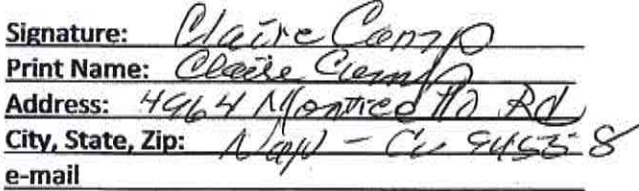 Signature: Claire Camp
Print Name: Claire Camp
Address: 4964 Monticello Rd
City, State, Zip: Napa - Ca 94558
e-mail